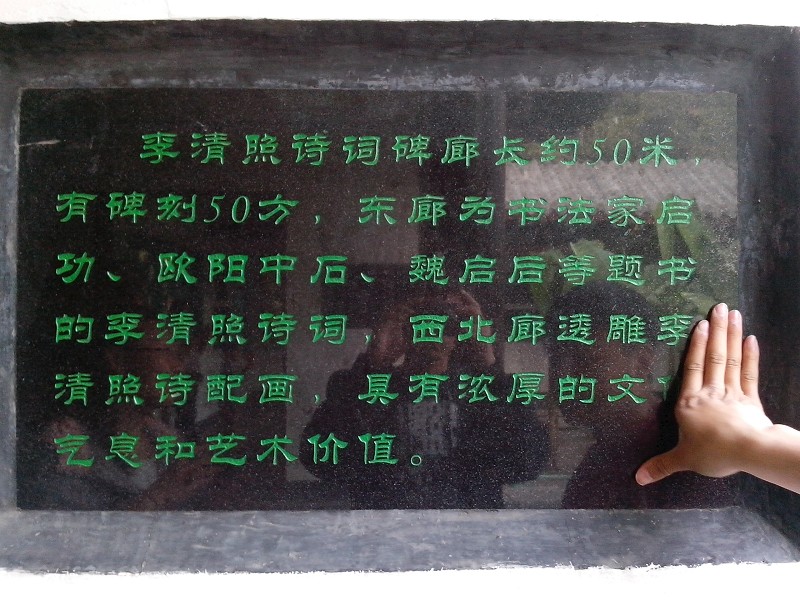 李清照诗词碑廊长约50米，
有碑刻50方，东廊为书法家启
功、欧阳中石、魏启后等题书
的李清照诗词，西北廊透雕李
清照诗配画，具有浓厚的文
气息和艺术价值。